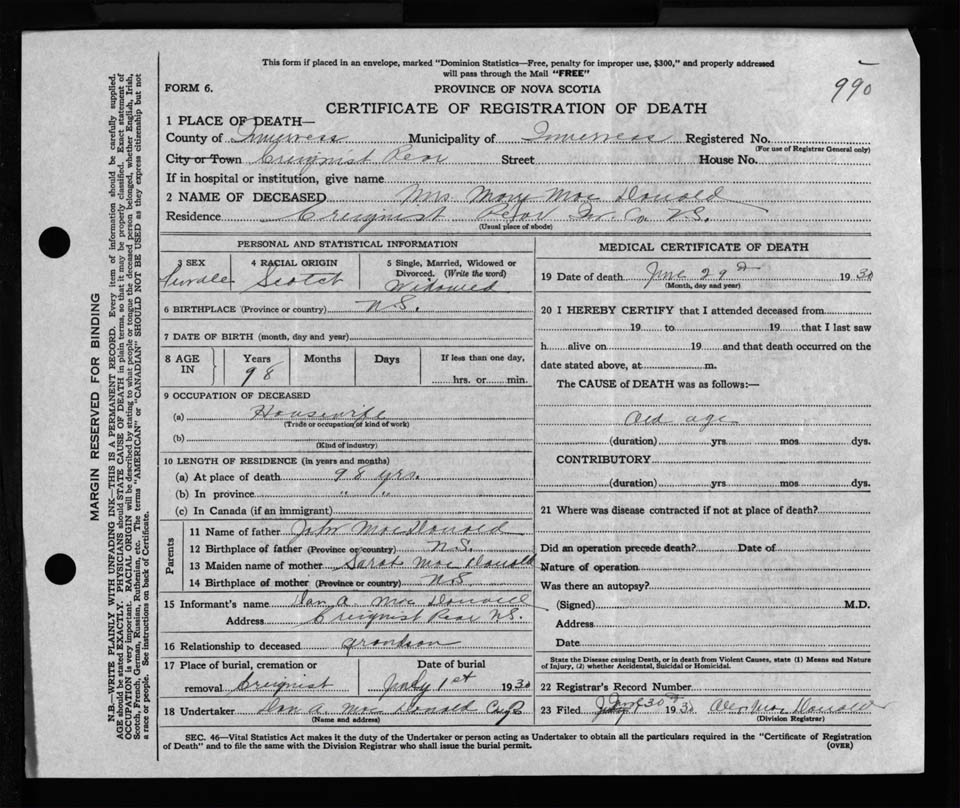 This form if placed in an envelope, marked "Dominion Statistics—Free, penalty for improper use, $300," and properly addressed
will pass through the Mail "FREE"
990
FORM 6. PROVINCE OF NOVA SCOTIA
CERTIFICATE OF REGISTRATION OF DEATH
1 PLACE OF DEATH—
County of Inverness Municipality of Inverness Registered No.
(For use of Registrar General only)
City or Town Creignist Rear Street House No.
If in hospital or institution, give name
2 NAME OF DECEASED Mrs Mary Mac Donald
Residence Creignist Rear Inv Co NS.
(Usual place of abode)
PERSONAL AND STATISTICAL INFORMATION
3 SEX 4 RACIAL ORIGIN 5 Single, Married, Widowed or
Divorced. (Write the word)
Female Scotch Widowed
6 BIRTHPLACE (Province or country) N.S.
7 DATE OF BIRTH (month, day and year)
8 AGE IN Years Months Days If less than one day,
98 hrs. or min.
9 OCCUPATION OF DECEASED
(a) Housewife
(Trade or occupation of kind of work)
(b)
(Kind of industry)
10 LENGTH OF RESIDENCE (in years and months)
(a) At place of death 98 yrs.
(b) In province " "
(c) In Canada (if an immigrant)
Parents
11 Name of father John MacDonald
12 Birthplace of father (Province or country) N.S.
13 Maiden name of mother Sarah Mac Donald
14 Birthplace of mother (Province or country) N.S
15 Informant's name Dan A. Mac Donald
Address Creignist Rear N.S.
16 Relationship to deceased grandson
17 Place of burial, cremation or Date of burial
removal Creignist July 1st 1930
18 Undertaker Dan A. Mac Donald
(Name and address)
MEDICAL CERTIFICATE OF DEATH
19 Date of death June 29th 1930
(Month, day and year)
20 I HEREBY CERTIFY that I attended deceased from
19 to 19 that I last saw
h alive on 19 and that death occurred on the
date stated above, at m.
The CAUSE of DEATH was as follows:—
Old age
(duration) yrs mos dys.
CONTRIBUTORY
(duration) yrs mos dys.
21 Where was disease contracted if not at place of death?
Did an operation precede death? Date of
Nature of operation
Was there an autopsy?
(Signed) M.D.
Address
Date
State the Disease causing Death, or in death from Violent Causes, state (1) Means and Nature
of Injury, (2) whether Accidental, Suicidal or Homicidal.
22 Registrar's Record Number
23 Filed June 30th 1930 Alex Mac Donald
(Division Registrar)
SEC. 46—Vital Statistics Act makes it the duty of the Undertaker or person acting as Undertaker to obtain all the particulars required in the "Certificate of Registration
of Death" and to file the same with the Division Registrar who shall issue the burial permit. (OVER)
MARGIN RESERVED FOR BINDING
N.B.—WRITE PLAINLY WITH UNFADING INK—THIS IS A PERMANENT RECORD. Every item of information should be carefully supplied.
AGE should be stated EXACTLY. PHYSICIANS should STATE CAUSE OF DEATH in plain terms, so that it may be properly classified. Exact statement of
OCCUPATION is very important. RACIAL ORIGIN will be described by stating to what people or tongue the deceased person belonged, whether English, Irish,
Scotch, French, German, Russian, Ruthenian, etc. The terms "AMERICAN" or "CANADIAN" SHOULD NOT BE USED as they express citizenship but not
a race or people. See instructions on back of Certificate.